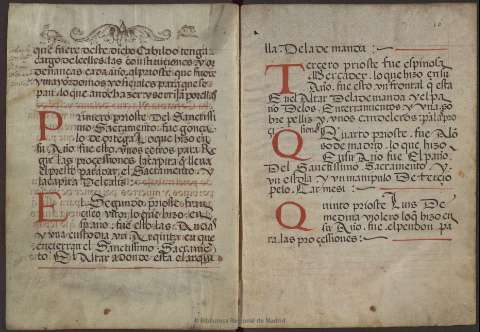 que fuere deste dicho Cabildo tenga
cargo de leelles las constituciones y or
denanças cada año, al prioste que fuere
y mayordomos y oficiales para que se
pan lo que an de hazer y se rija por ellas
Primero prioste Del Sanctissi
mo Sacramento fue gonça
lo de ortega Lo que hizo en
su Año fue esto vnos cetros para Re
gir las procesiones la tapira
el prioste para dar el Sacramento y
la
El Segundo prioste fran
cisco vitor lo que hizo en
su año fue esto las Andas
y vna custodia en que
encierran el Sanctissimo Sacrame
to El Altar a donde esta el arqui
10
lla De la demanda
Tercero prioste espinosa
Mercader lo que hizo en su
Año fue esto vn frontal q esta
En el Altar De la demanda y el pa
ño De los Enterramientos y vna so
bre pelliz y vnos candeleros para la pro
Quarto prioste fue Alo
so de madrid lo que hizo
En su Año fue El paño
Del Sanctissimo Sacramento y
vn estola y vn manipulo De tercio
pelo Carmesi
Quinto prioste Luis De
medina violero lo q hizo en
su Año fue el pendon pa
ra las procesiones
© Biblioteca Regional de Madrid